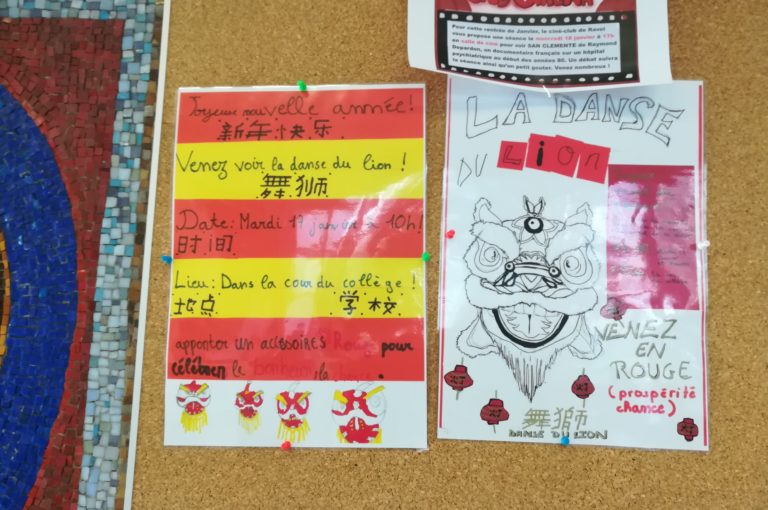 Pour cette rentrée de Janvier, le ciné-club de Ravel
vous propose une séance le mercredi 18 janvier à 17h
en salle de cine pour voir SAN CLEMENTE de Raymond
Depardon, un documentaire français sur un hôpital
psychiatrique au début des années 80. Un débat suivra
la séance ainsi qu'un petit gouter. Venez nombreux !
Joyeuse nouvelle année!
新年快乐
Venez voir la danse du lion !
舞狮
Date: Mardi 17 janvier à 10h!
时间
Lieu: Dans la cour du collège !
地点 学校
apporter un accessoires Rouge pour
célébrer le bonheur, la chance.
LA DANSE
DU Lion
VENEZ
EN
ROUGE
(prospérité
chance)
舞獅
DANSE DU LION